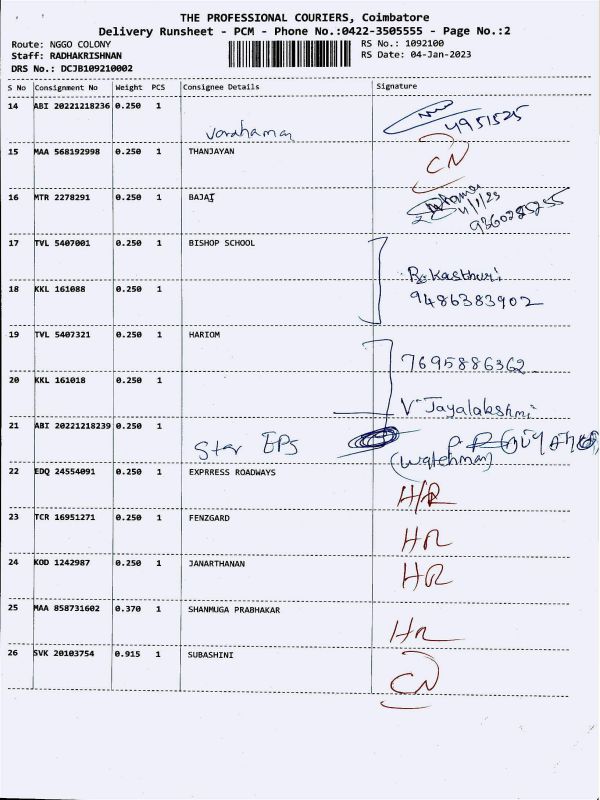 THE PROFESSIONAL COURIERS, Coimbatore
Delivery Runsheet - PCM - Phone No.:0422-3505555 - Page No.:2
Route: NGGO COLONY RS No.: 1092100
Staff: RADHAKRISHNAN RS Date: 04-Jan-2023
DRS No.: DCJB109210002
S No Consignment No Weight PCS Consignee Details Signature
14 ABI 20221218236 0.250 1
Vorahaman 4951525
15 MAA 568192998 0.250 1 THANJAYAN CN
16 MTR 2278291 0.250 1 BAJAJ 4/1/23
9360285255
17 TVL 5407001 0.250 1 BISHOP SCHOOL
R. Kasthuri
18 KKL 161088 0.250 1 9486383902
19 TVL 5407321 0.250 1 HARIOM
7695886362
20 KKL 161018 0.250 1
V Jayalakshmi
21 ABI 20221218239 0.250 1
Star EPS
(Watchman)
22 EDQ 24554091 0.250 1 EXPRRESS ROADWAYS H/R
23 TCR 16951271 0.250 1 FENZGARD HR
24 KOD 1242987 0.250 1 JANARTHANAN HR
25 MAA 858731602 0.370 1 SHANMUGA PRABHAKAR HR
26 SVK 20103754 0.915 1 SUBASHINI CN